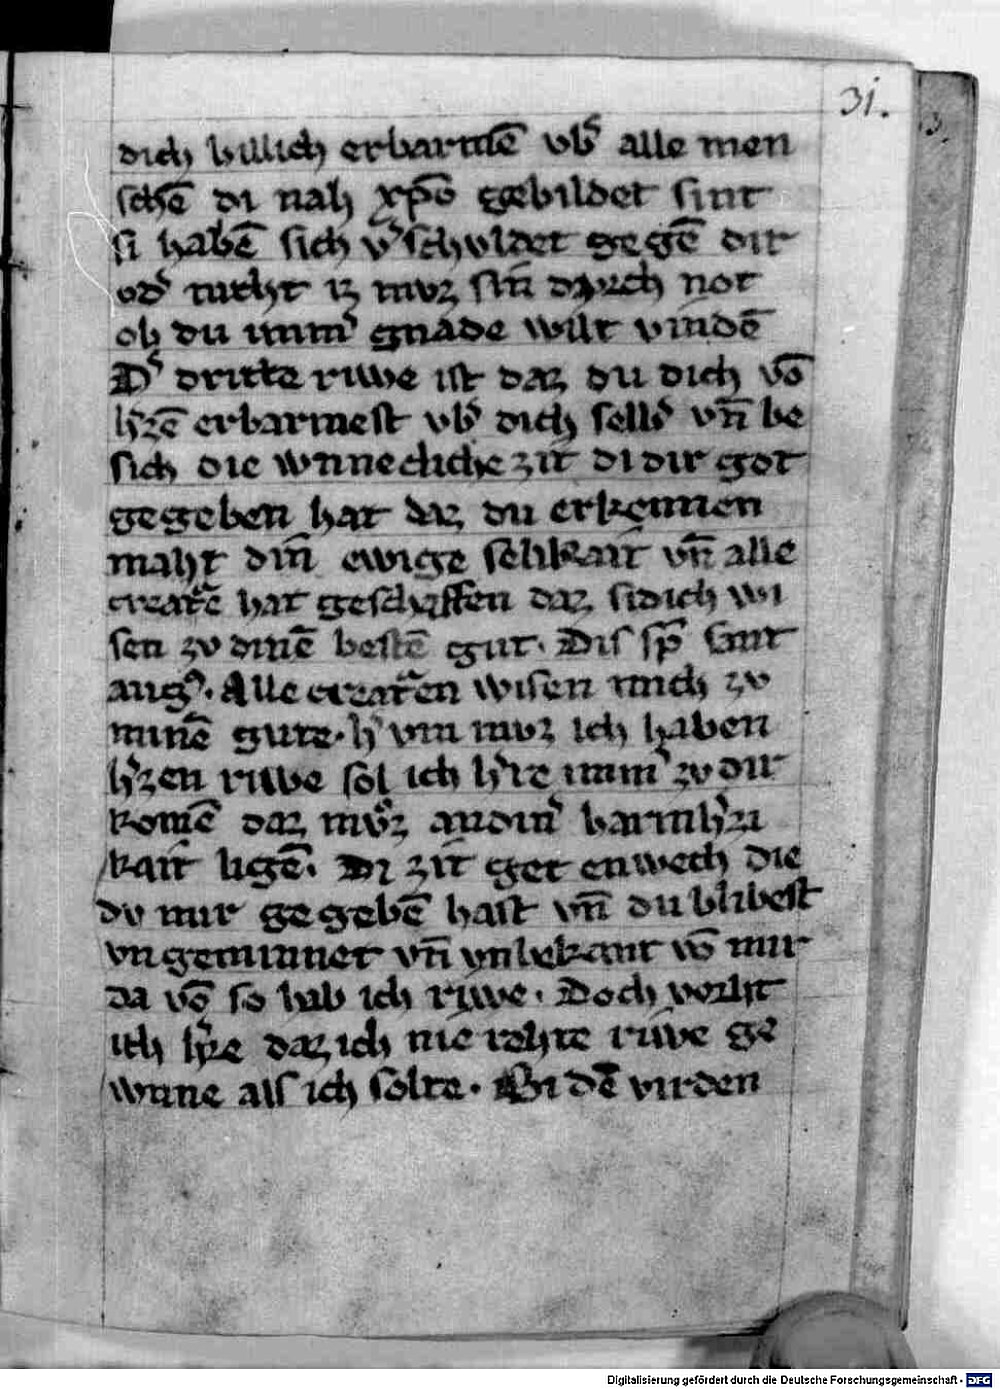 31.
3.
dich billich erbarmē vb͛ alle men
schē di nah xp̄o gebildet sint
si habē sich v͛schvldet gegē dir
od͛ niht iz mvz sin̄ dvrch not
ob du imm͛ gnade wilt vindē
D͛ dritte riwe ist daz du dich vō
h͛zē erbarmest vb͛ dich selb͛ vn̄ be
sich die wnnecliche zit di dir got
gegeben hat daz du erkennen
maht din̄ ewige selikait vn̄ alle
creatᵛē hat geschaffen daz si dich wi
sen zv dinē bestē gut. Dis sp̄ sant
aug͛. Alle creatᵛen wisen mich zv
minē gute. h͛ vm mvz ich haben
h͛zen riwe sol ich h͛re imm͛ zv dir
komē daz mvz an din͛ barmh͛zi
kait ligē. Di zit get enwech die
dv mir gegebē hast vn̄ du blibest
vngeminnet vn̄ vnbekant vō mir
da vō so hab ich riwe. Doch vorht
ich h͛re daz ich nie rehte riwe ge
wnne als ich solte. Bi dē virden
Digitalisierung gefördert durch die Deutsche Forschungsgemeinschaft - DFG